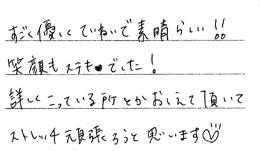 すごく優しくていねいで素晴らしい!!
笑顔もステキ♥でした!
詳しくこっている所とかおしえて頂いて
ストレッチ頑張ろうと思います♡